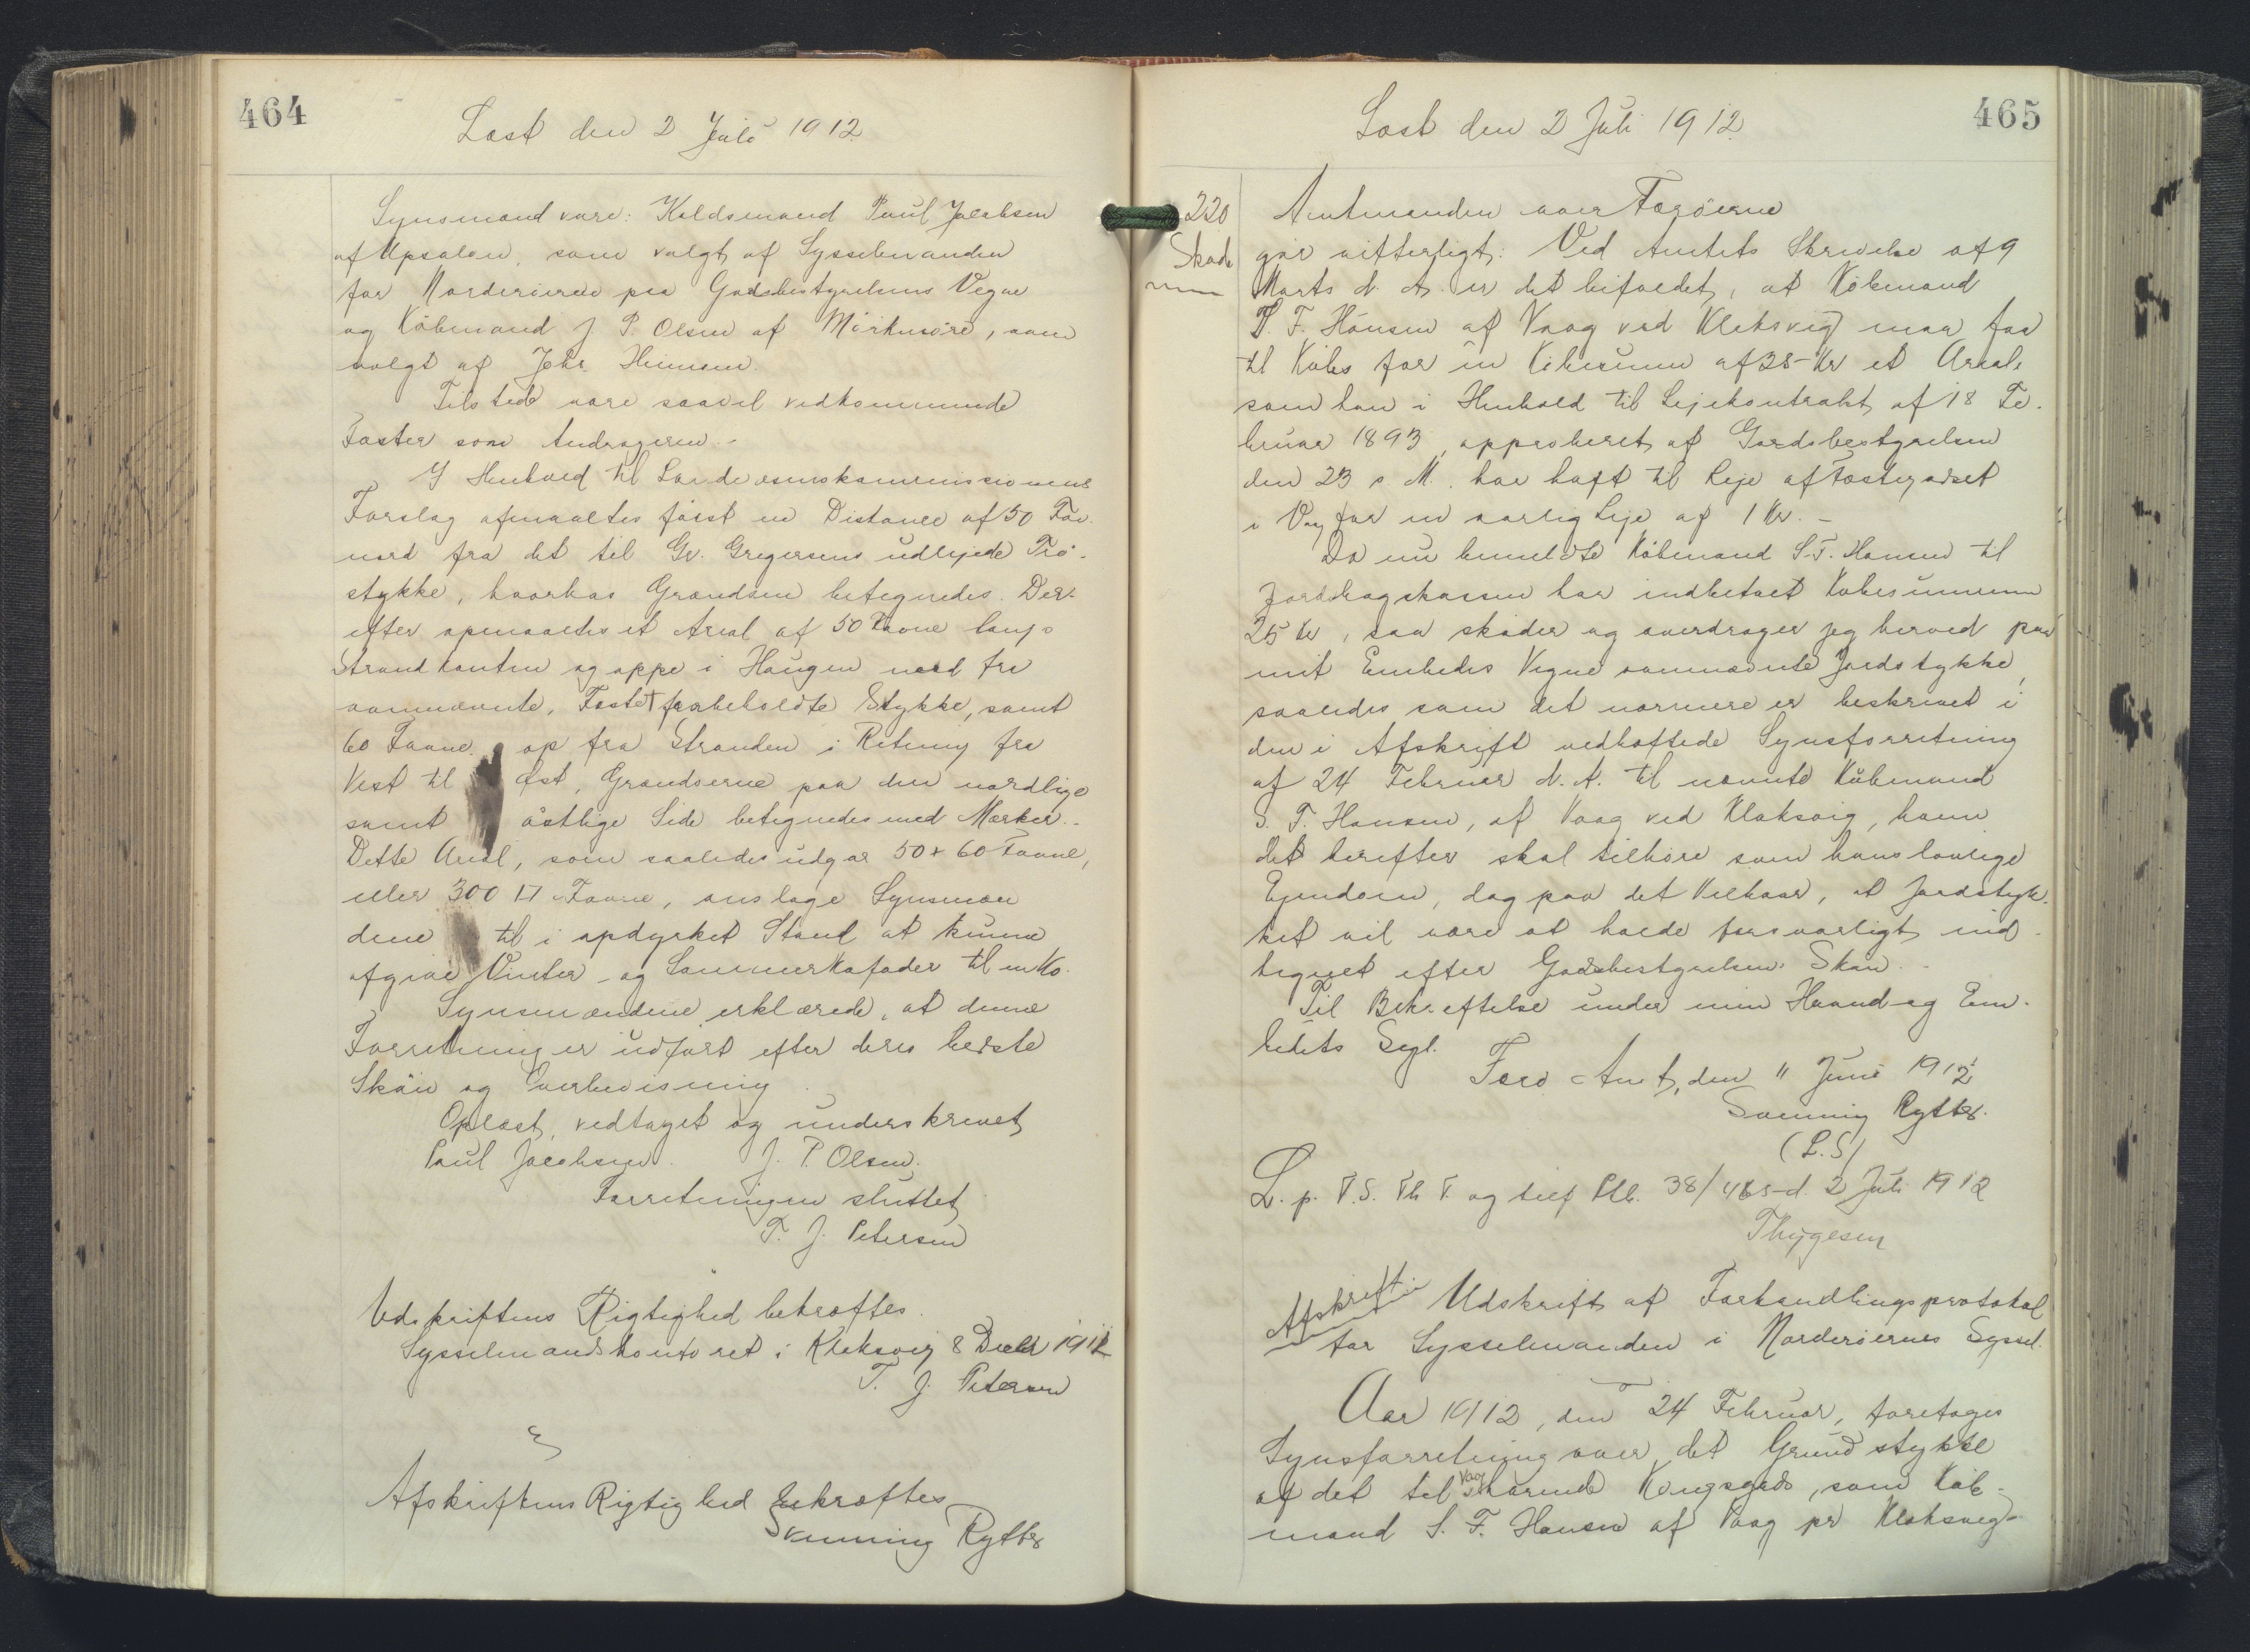 464
Læst den 2 Juli 1912.
Synsmænd vare: Kaldsmand Paul Jacobsen
af Upsalen, som valgt af Sysselmanden
for Norderöerne paa Godsbestyrelsens Vegne
og Köbmand J. P. Olsen af Mörkensöre, som
valgt af Johs. Heinesen.
Tilstede vare saavel vedkommende
Fæster som Andrageren. -
I Henhold til Landvæsenskommissionens
Forslag afmaaltes först en Distance af 50 Fav.
nord fra det til Gr. Gregersens udlejede Trö-
stykke, hvorhos Grændsen betegnedes. Der-
efter opmaaltes et Areal af 50 Favne langs
Strandkanten og oppe i Haugen nord fra
ovennævnte, Fæster forbeholdte Stykke, samt
60 Favne op fra Stranden i Retning fra
Vest til Öst, Grændserne paa den nordlige
samt östlige Side betegnedes med Mærker. -
Dette Areal, som saaledes udgör 50 x 60 Favne,
eller 300 □ Favne, anslage Synsmæn
dene til i opdyrket Stand at kunne
afgive Vinter- og Sommerkofoder til en Ko.
Synsmændene erklærede, at denne
Forretning er udfört efter deres bedste
Skön og Overbevisning.
Oplæst, vedtaget og underskrevet
Paul Jacobsen. J. P. Olsen.
Forretningen sluttet
T. J. Petersen
Udskriftens Rigtighed bekræftes.
Sysselmandskontoret i Klaksvig 8 Decbr 1911
T. J. Petersen
Afskriftens Rigtighed bekræftes
Svenning Rytter
465
Læst den 2 Juli 1912
220
Skøde
Amtmanden over Færöerne
gör vitterligt: Ved Amtets Skrivelse af 9
Marts d. A. er det bifaldet, at Köbmand
S. F. Hansen af Vaag ved Klaksvig maa faa
til Köbs for en Købesum af 25- Kr et Areal,
som han i Henhold til Lejekontrakt af 18 Fe-
bruar 1893, approberet af Godsbestyrelsen
den 23 s. M. har haft til Leje af Fæstegodset
i Vaag for en aarlig Leje af 1 Kr. -
Da nu bemeldte Köbmand S. F. Hansen til
Jordebogskassen har indbetalt Købesummen
25 Kr, saa sköder og overdrager jeg herved paa
mit Embedes Vegne ovennævnte Jordstykke,
saaledes som det nærmere er beskrevet i
den i Afskrift vedhæftede Synsforretning
af 24 Februar d. A. til nævnte Köbmand
S. F. Hansen, af Vaag ved Klaksvig, ham
det herefter skal tilhöre som hans lovlige
Ejendom, dog paa det Vilkaar, at Jordstyk-
ket vil være at holde forsvarligt ind-
hegnet efter Godsbestyrelsens Skön. -
Til Bekræftelse under min Haand og Em-
bedets Segl.
Færö Amt, den " Juni 1912
Svenning Rytter.
(L.S)
L. p. F.S. Th F. og tilf Plb. 38/465 d. 2 Juli 1912
Thygesen
Afskrift
Udskrift af Forhandlingsprotokol
for Sysselmanden i Norderöernes Syssel.
Aar 1912, den 24 Februar, foretages
Synsforretning over det Grundstykke
af det til Vaag hörende Kongsgods, som Köb-
mand S. F. Hansen af Vaag pr Klaksvig